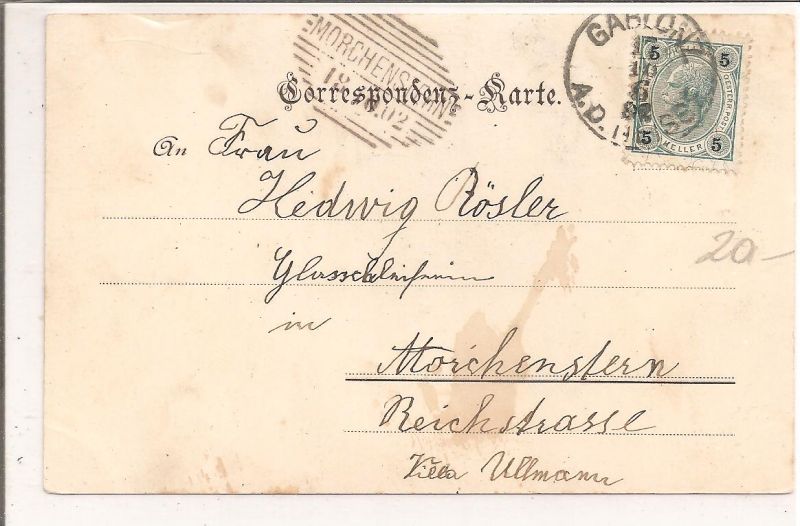 MORCHENSTERN
18.02
GABLONZ
A.D.N.
5 5
OESTERR.POST.
5 HELLER 5
Correspondenz-Karte.
An Frau
Hedwig Rösler
Glasschleiferin
2a-
in
Morchenstern
Reichstrasse
Villa Ullmann